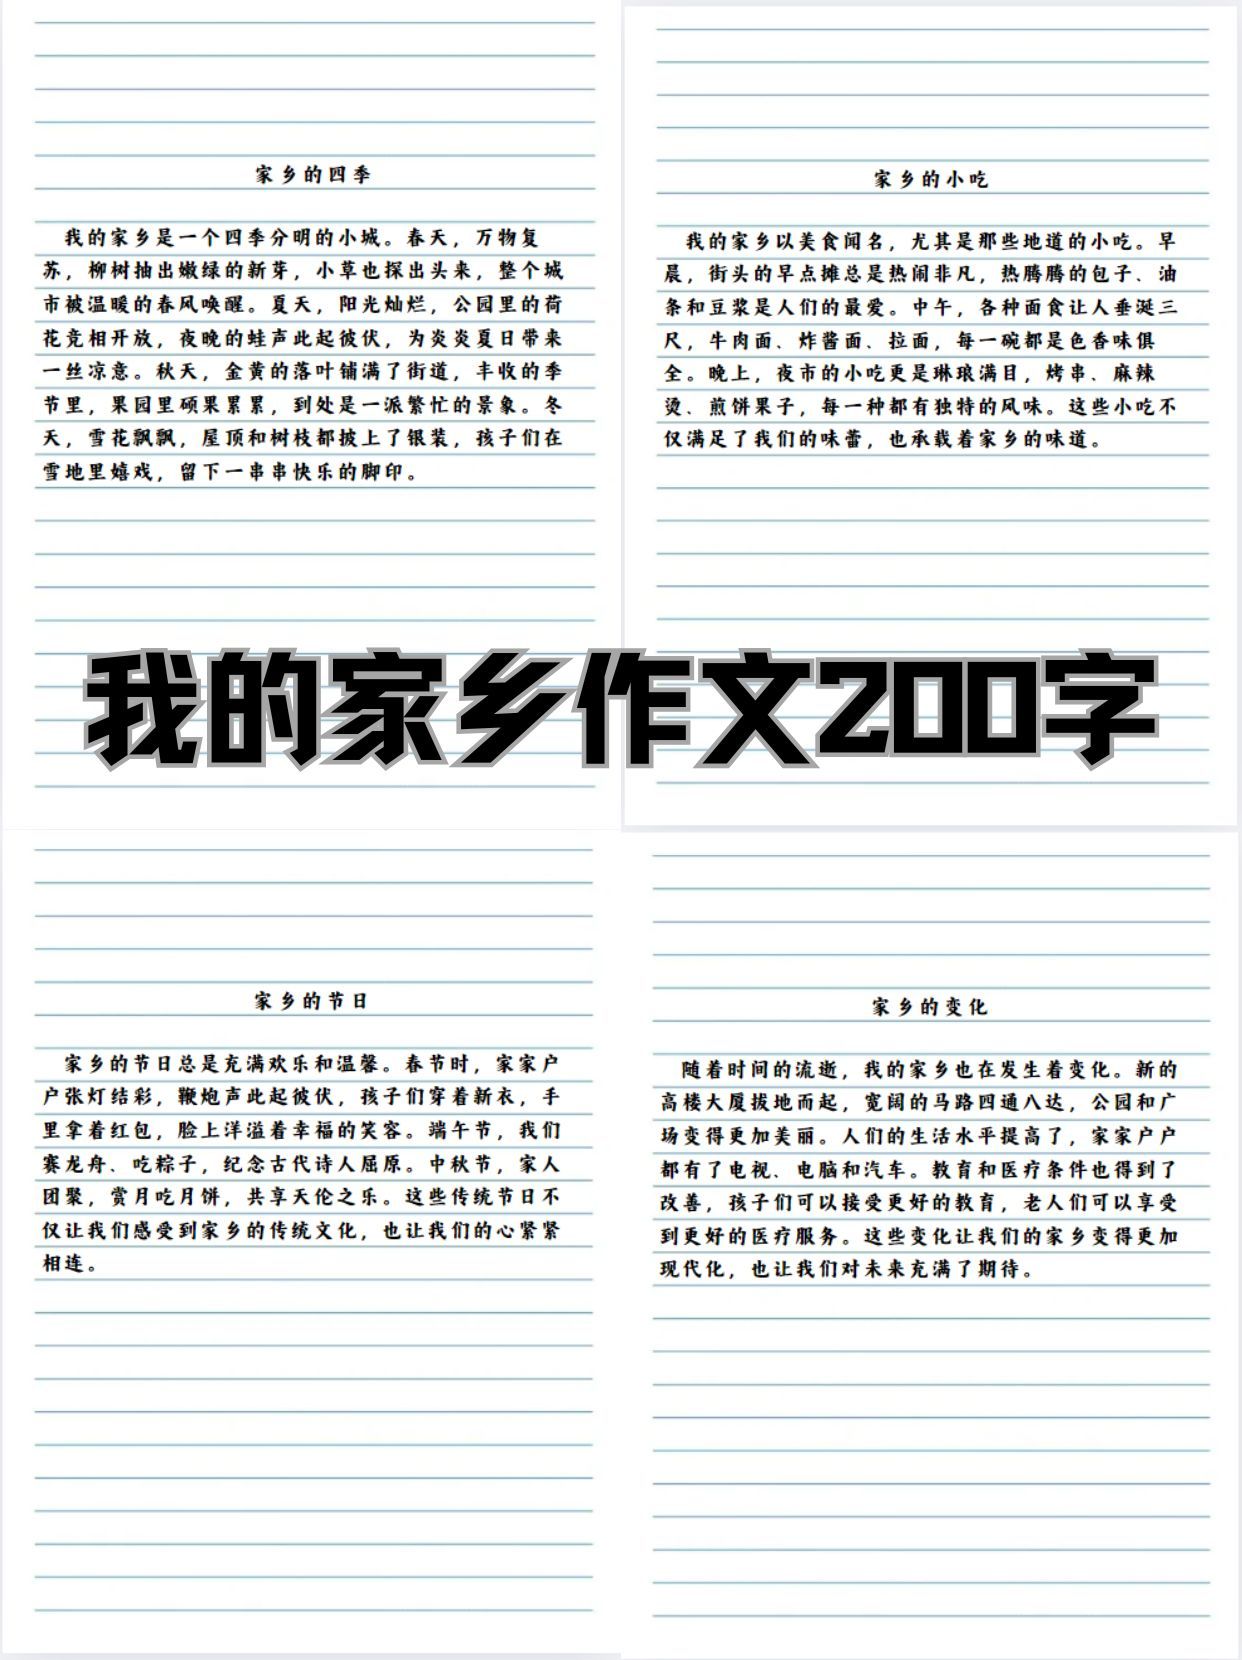 家乡的四季
我的家乡是一个四季分明的小城。春天，万物复
苏，柳树抽出嫩绿的新芽，小草也探出头来，整个城
市被温暖的春风唤醒。夏天，阳光灿烂，公园里的荷
花竞相开放，夜晚的蛙声此起彼伏，为炎炎夏日带来
一丝凉意。秋天，金黄的落叶铺满了街道，丰收的季
节里，果园里硕果累累，到处是一派繁忙的景象。冬
天，雪花飘飘，屋顶和树枝都披上了银装，孩子们在
雪地里嬉戏，留下一串串快乐的脚印。
家乡的小吃
我的家乡以美食闻名，尤其是那些地道的小吃。早
晨，街头的早点摊总是热闹非凡，热腾腾的包子、油
条和豆浆是人们的最爱。中午，各种面食让人垂涎三
尺，牛肉面、炸酱面、拉面，每一碗都是色香味俱
全。晚上，夜市的小吃更是琳琅满目，烤串、麻辣
烫、煎饼果子，每一种都有独特的风味。这些小吃不
仅满足了我们的味蕾，也承载着家乡的味道。
我的家乡作文200字
家乡的节日
家乡的节日总是充满欢乐和温馨。春节时，家家户
户张灯结彩，鞭炮声此起彼伏，孩子们穿着新衣，手
里拿着红包，脸上洋溢着幸福的笑容。端午节，我们
赛龙舟、吃粽子，纪念古代诗人屈原。中秋节，家人
团聚，赏月吃月饼，共享天伦之乐。这些传统节日不
仅让我们感受到家乡的传统文化，也让我们的心紧紧
相连。
家乡的变化
随着时间的流逝，我的家乡也在发生着变化。新的
高楼大厦拔地而起，宽阔的马路四通八达，公园和广
场变得更加美丽。人们的生活水平提高了，家家户户
都有了电视、电脑和汽车。教育和医疗条件也得到了
改善，孩子们可以接受更好的教育，老人们可以享受
到更好的医疗服务。这些变化让我们的家乡变得更加
现代化，也让我们对未来充满了期待。